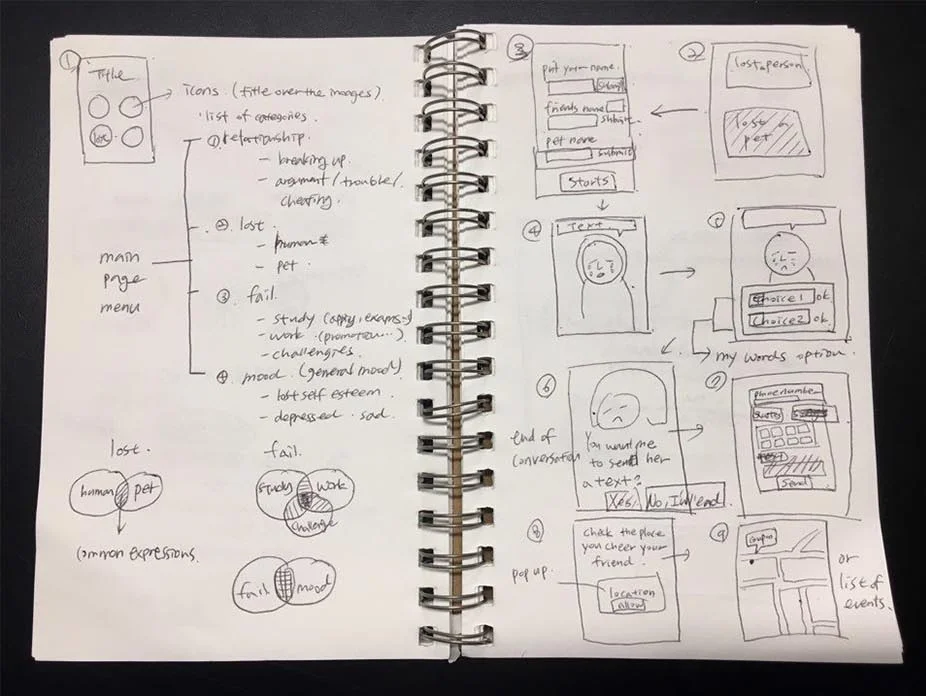 ①
Title
icons (title over the images)
list of categories.
① relationship.
- breaking up.
- argument/trouble/
cheating.
② lost
- human
- pet.
main
page
menu
③ fail.
- study
- work
- challengies.
④ mood (general mood)
- lost self esteem.
- depressed. sad.
lost.
human pet
common expressions.
fail.
study work
challenge
fail mood
③
put your name.
submit
friends name
submit
pet name
submit
Starts
②
lost a person
lost a
pet
④
Text
⑤
Choice1 ok
Choice2 ok
my words option.
⑥
end of
conversation
You want me
to send her
a text?
Yes, No, I'll end
⑦
phone number
Send
⑧
check the place
you cheer your
friend.
pop up.
location
allow
⑨
coupon
or
list of
events.